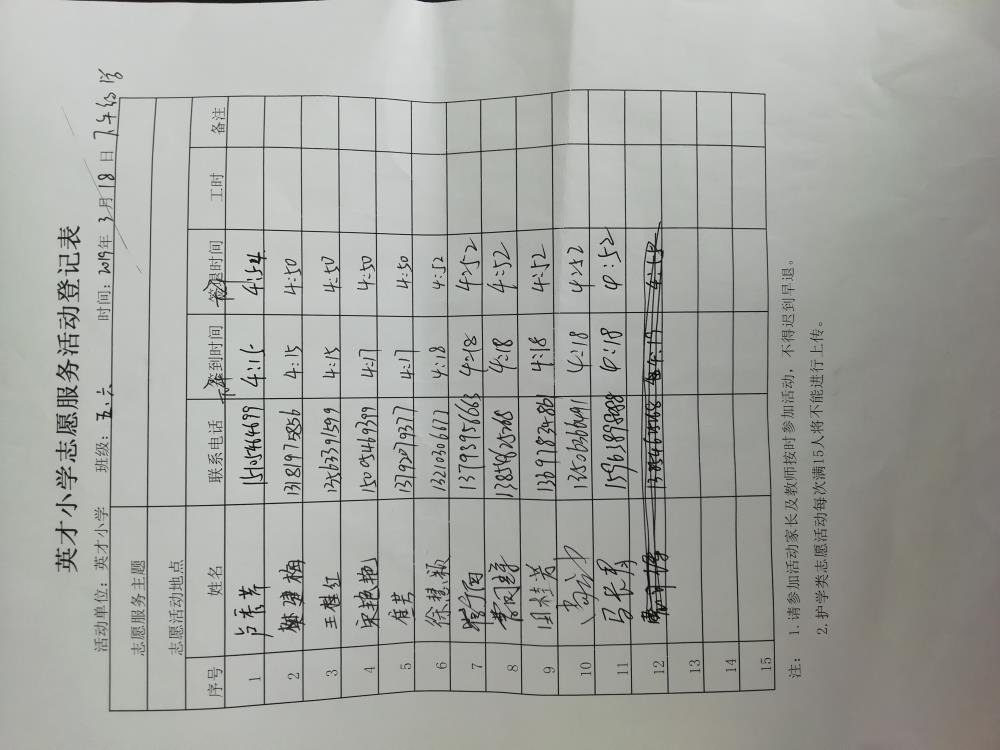 英才小学志愿服务活动登记表
活动单位：英才小学 班级：五.六 时间：2019年 3月 18日 下午
志愿服务主题
志愿活动地点
序号 姓名 联系电话 签到时间 签退时间 工时 备注
1 卢秀芹 15105464699 4:15 4:54
2 樊建梅 13181975856 4:15 4:50
3 王桂红 13563391599 4:15 4:50
4 宋艳艳 15005469399 4:17 4:50
5 崔芸 13792079377 4:17 4:50
6 徐慧颖 13210306677 4:18 4:52
7 13793956663 4:18 4:52
8 13854625268 4:18 4:52
9 田桂芳 13697834861 4:18 4:52
10 4:18 4:52
11 马长月 4:18 4:52
12
13
14
15
注： 1. 请参加活动家长及教师按时参加活动，不得迟到早退。
2. 护学类志愿活动每次满15人将不能进行上传。